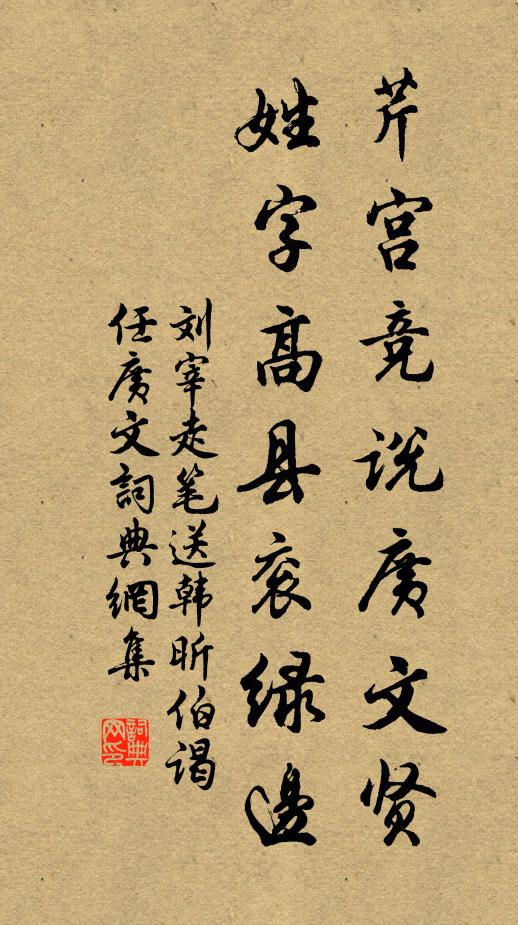 芹宫竞说廣文贤
姓字高县衮绿邊
刘宰走笔送韩昕伯谒
任廣文詞典網集
詞典网印